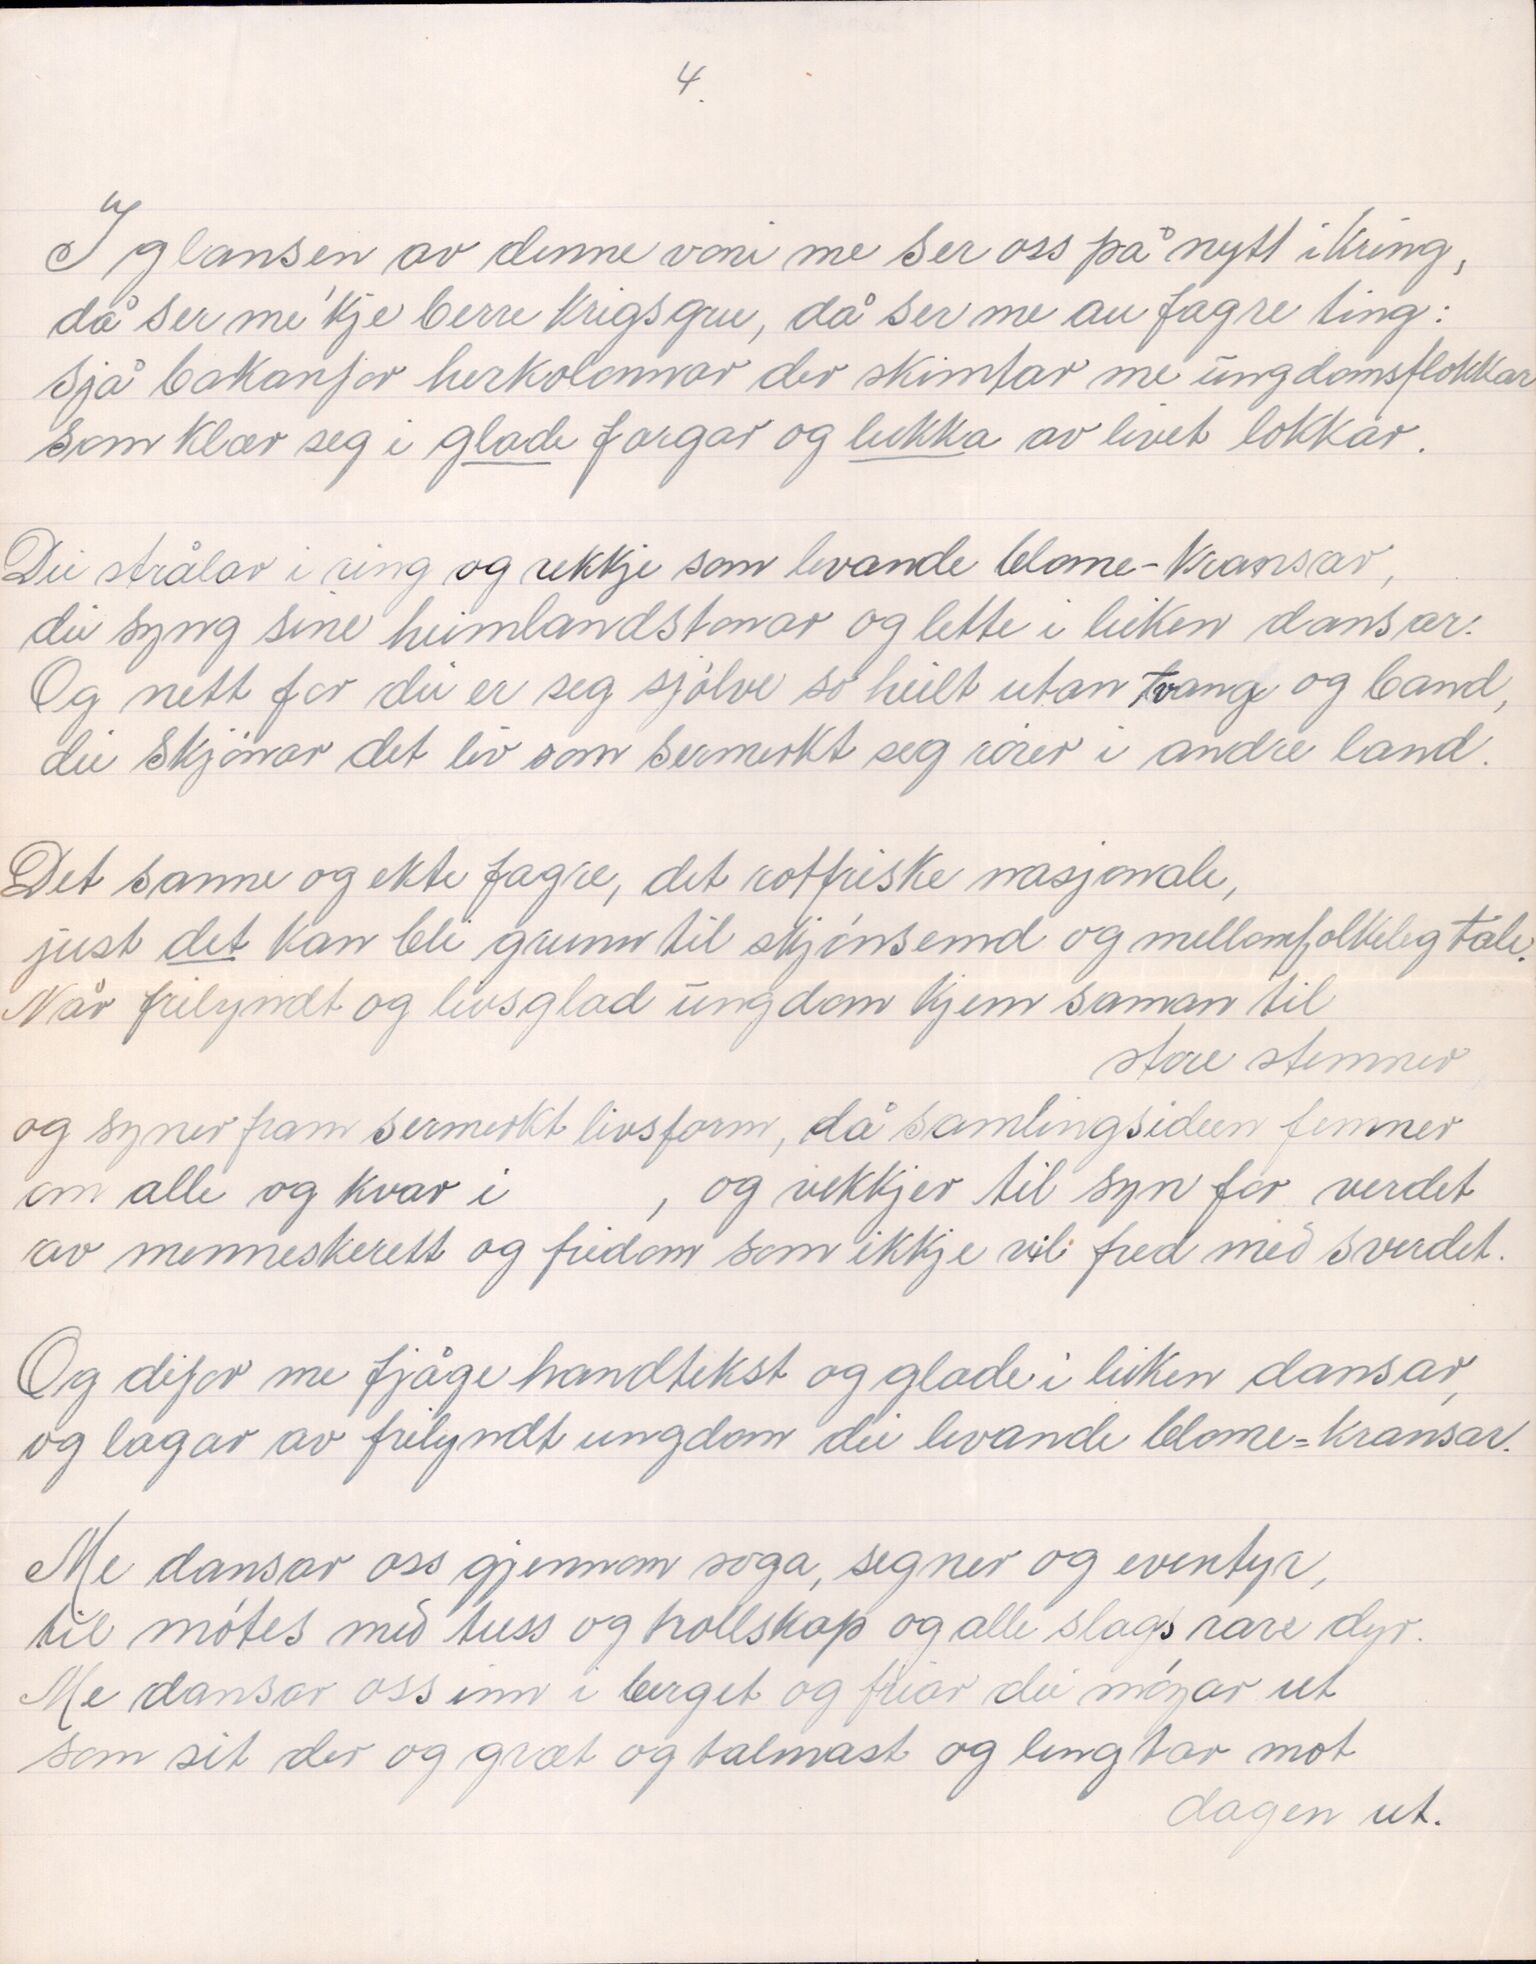 4.
I glansen av denne voni me ser oss på nytt ikring,
då ser me 'kje berre krigsgru, då ser me au fagre ting:
sjå bakanfor herkolonnar der skimtar me ungdomsflokkar
som klær seg i glade fargar og lukka av livet lokkar.
Dei strålar i ring og rekkje som levande blome-kransar,
dei syng sine heimlandstonar og lette i leiken dansar.
Og nett for dei er seg sjølve so heilt utan tvang og band,
dei skjønar det liv som sermerkt seg rører i andre land.
Det sanne og ekte fagre, det rotfriske nasjonale,
just det kan bli grunn til skjønsemd og mellomfolkeleg tale.
Når frilyndt og livsglad ungdom kjem saman til
store stemner
og syner fram sermerkt livsform, då samlingsideen femner
om alle og kvar i , og vekkjer til syn for verdet
av menneskerett og fridom som ikkje vil fred med sverdet.
Og difor me fjåge handtekst og glade i leiken dansar,
og lagar av frilyndt ungdom dei levande blome=kransar.
Me dansar oss gjennom soga, segner og eventyr,
til møtes med tuss og trollskap og alle slags rare dyr.
Me dansar oss inn i berget og friar dei møyar ut
som sit der og græt og talmast og lengtar mot
dagen ut.